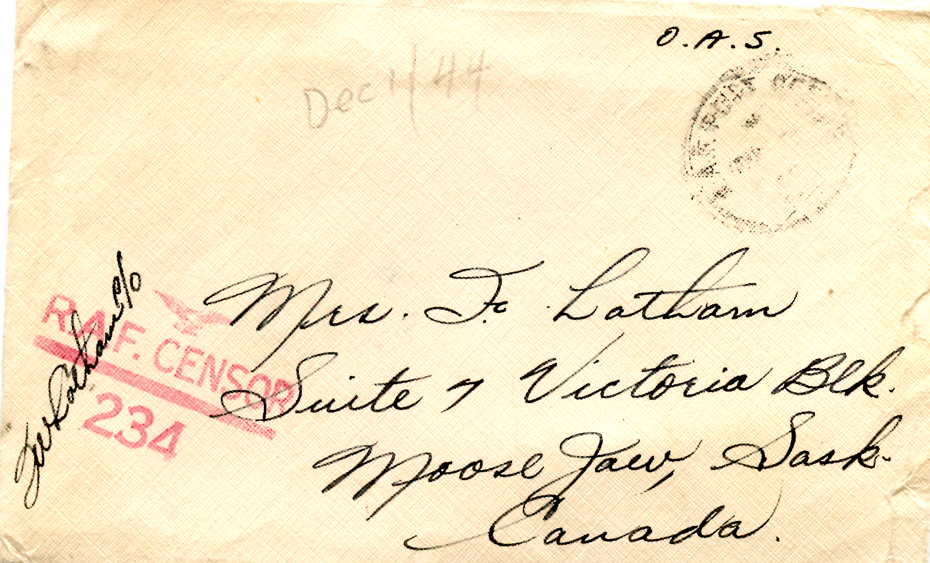 O.A.S.
Dec 1/44
R.A.F. POST OFFICE
Mrs. F. Latham
Suite 7 Victoria Blk.
Moose Jaw, Sask.
Canada.
R.A.F. CENSOR
234
Latham